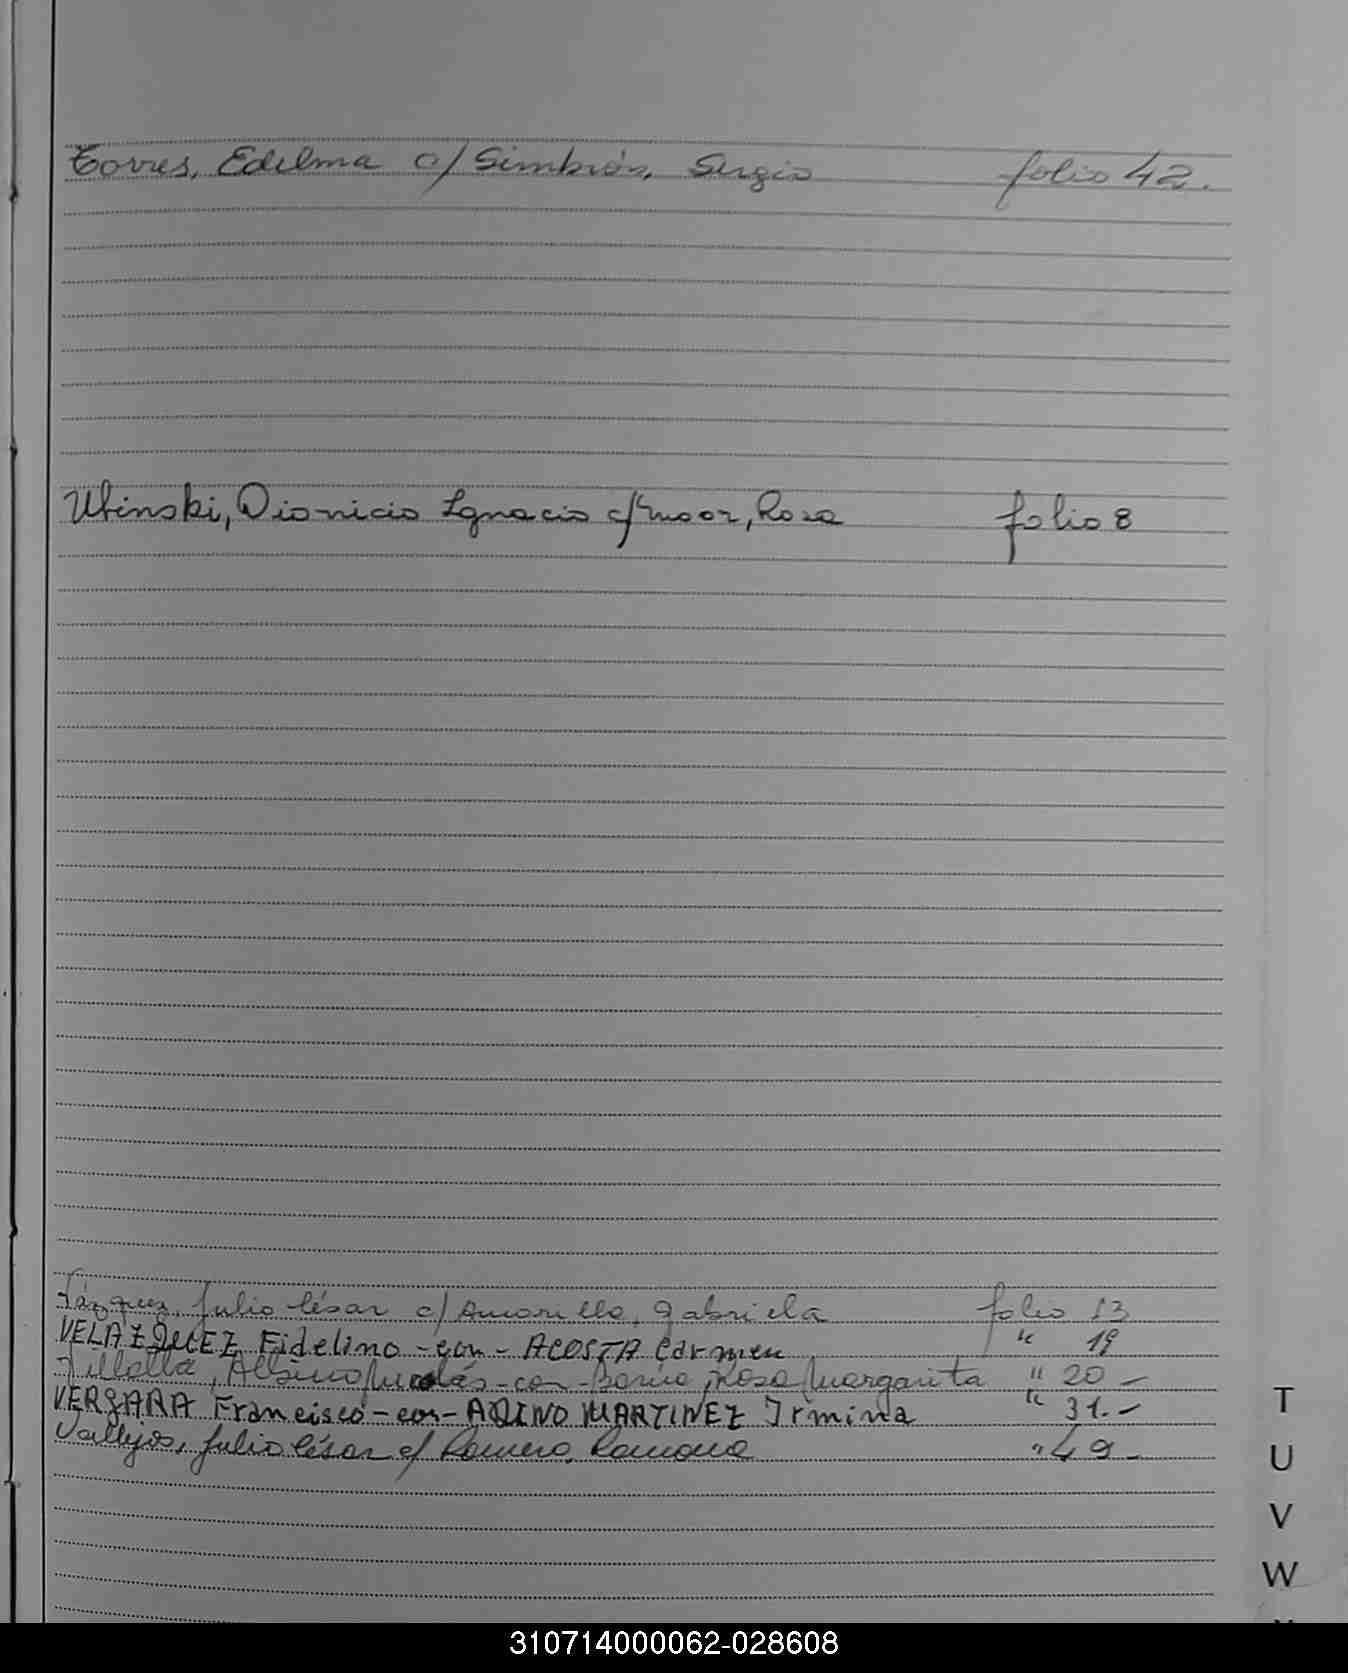 Torres, Edelma c/ Simbrón, Sergio folio 42.
Ubinski, Dionicio Ignacio c/ Moor, Rosa folio 8
Vázquez, Julio César c/ Amarilla, Gabriela folio 13
VELAZQUEZ Fidelino - con - ACOSTA Carmen " 19
Villalla, Albino Nicolás - con - Rosa Margarita " 20 -
VERGARA Francisco - con - AQUINO MARTINEZ Irmina " 31. -
Vallejos, Julio César c/ Romero, Ramona " 49 -
T
U
V
W
310714000062-028608